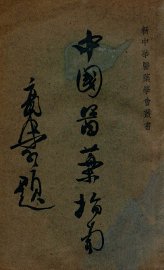 新中華醫藥學會叢書
中國醫藥指南
題